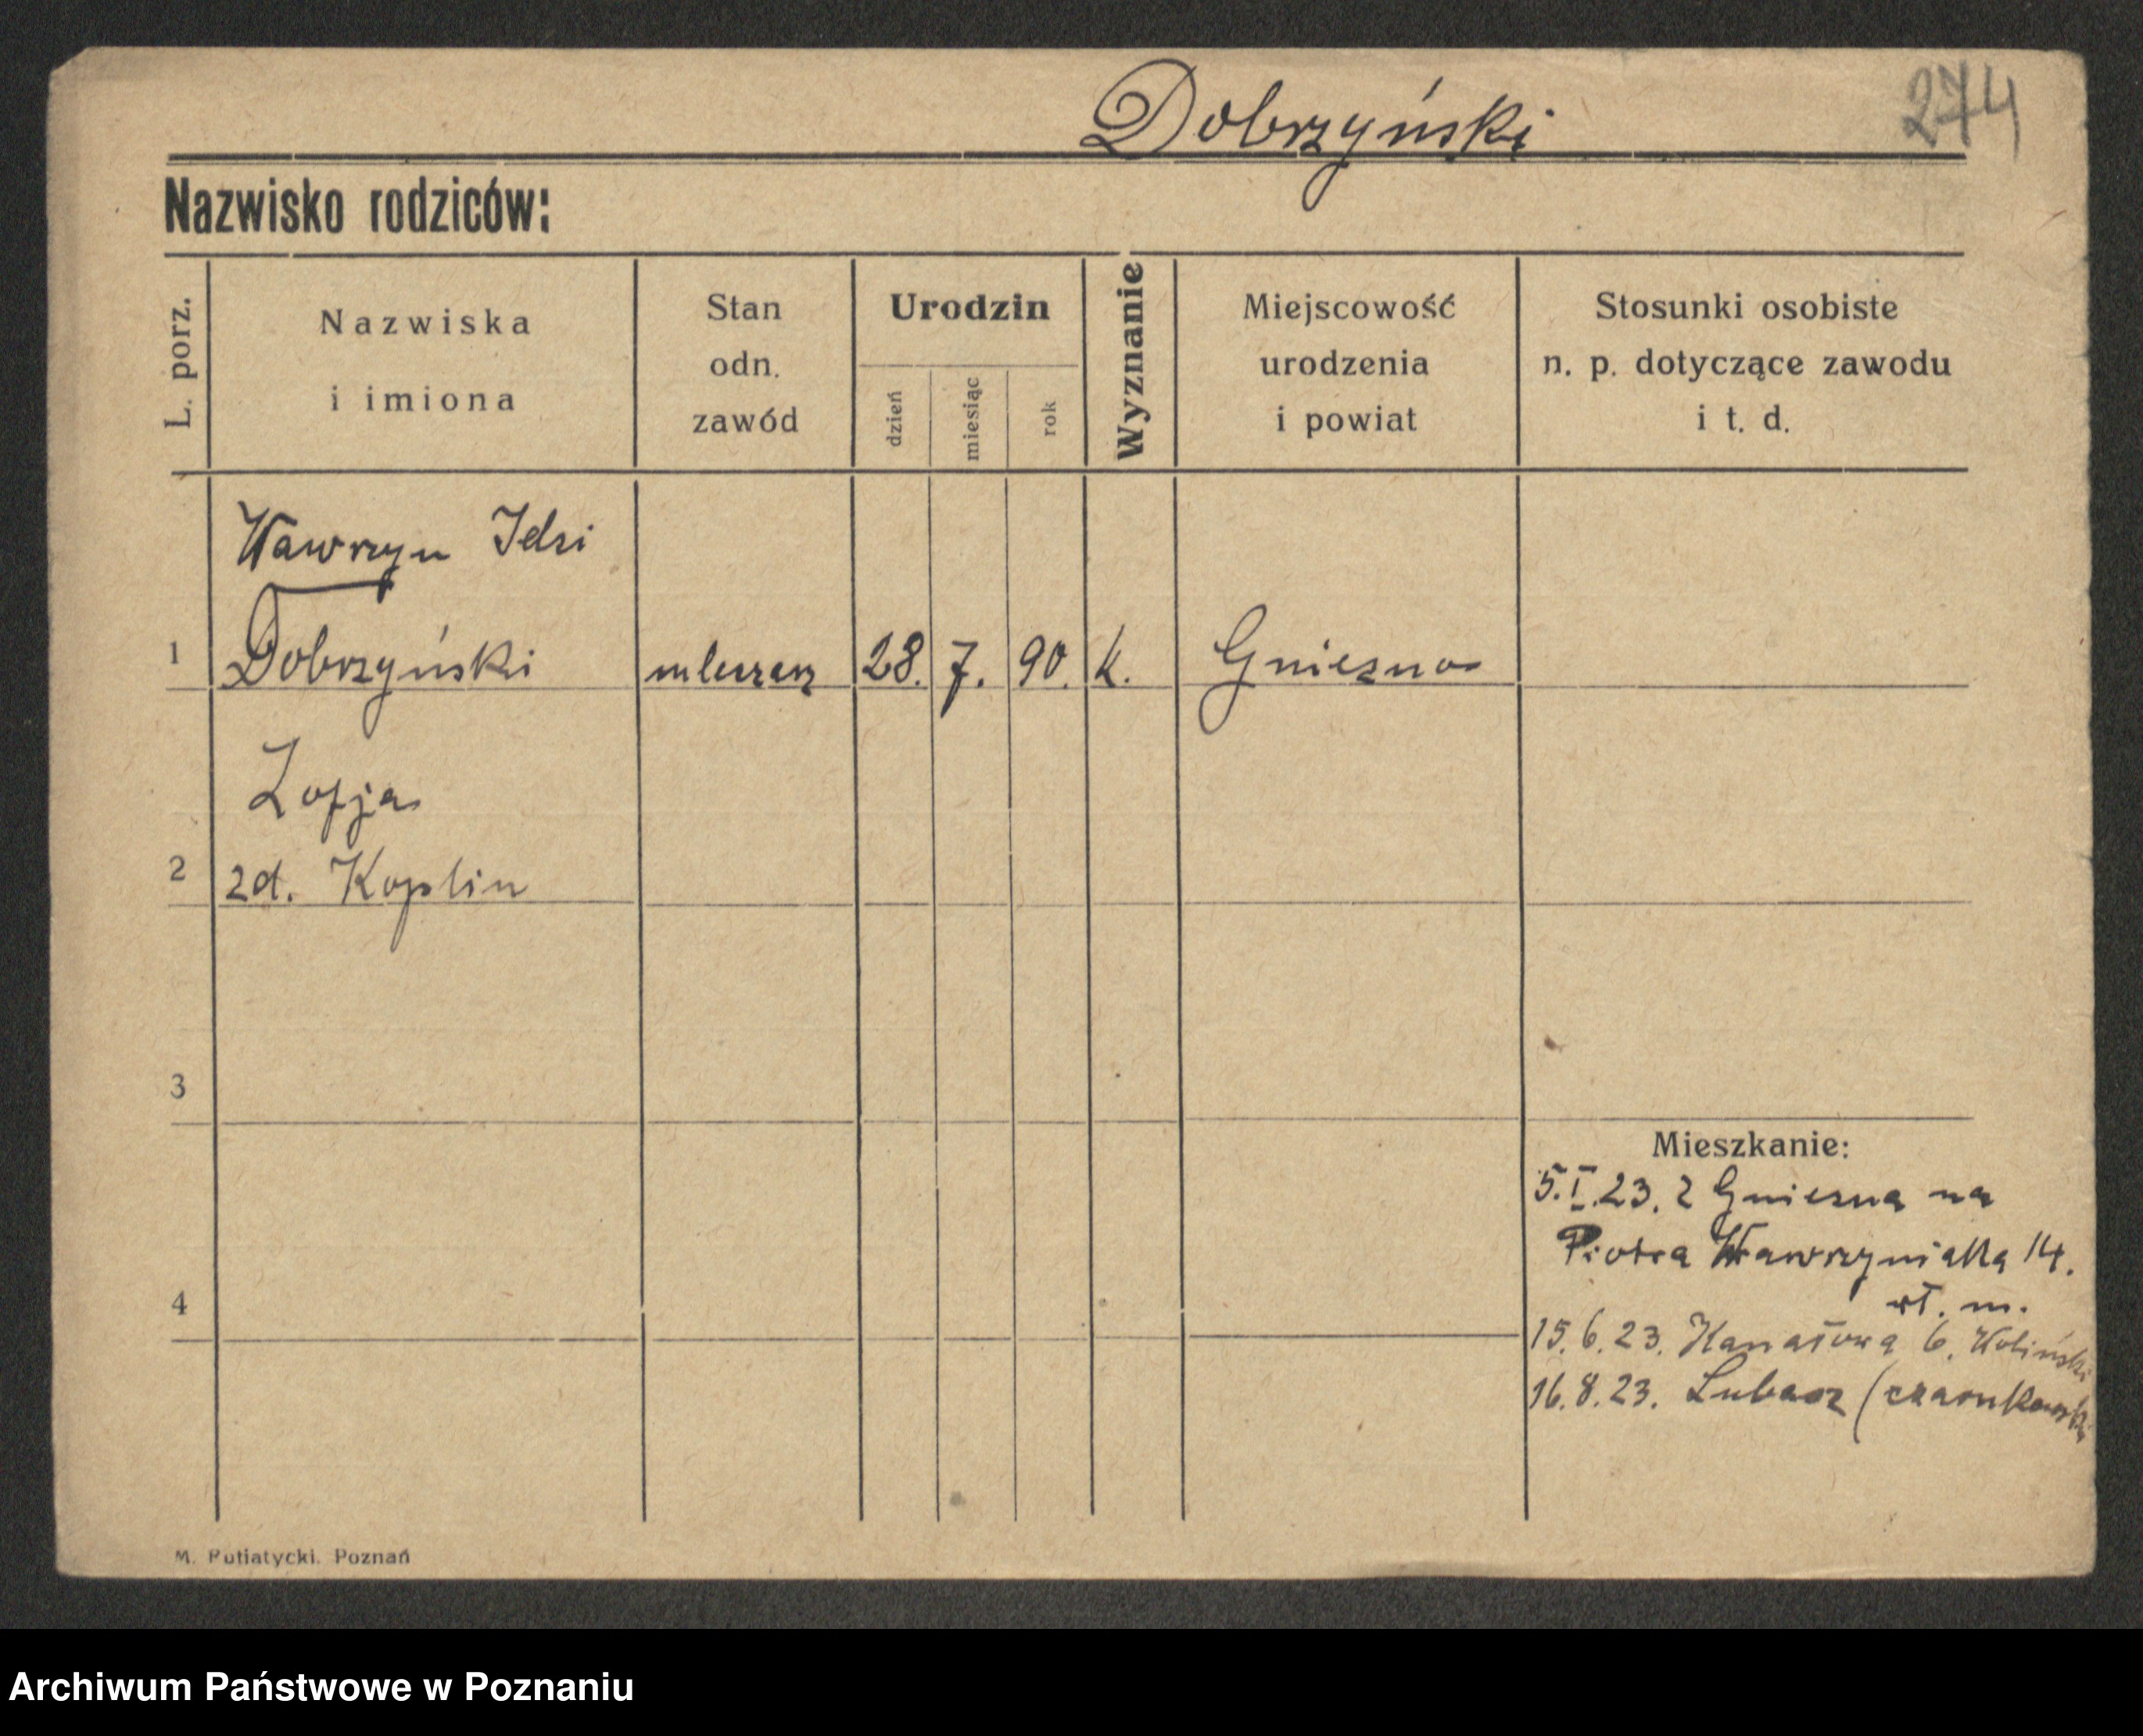 Dobrzyński
274
Nazwisko rodziców:
L. porz.
Nazwiska
i imiona
Stan
odn.
zawód
Urodzin
dzień
miesiąc
rok
Wyznanie
Miejscowość
urodzenia
i powiat
Stosunki osobiste
n. p. dotyczące zawodu
i t. d.
Wawrzyn Idzi
1 Dobrzyński mleczarz 28. 7. 90. k. Gniezno
Zofja
2 zd. Koplin
3
Mieszkanie:
5.I.23. z Gniezna na
Piotra Wawrzyniaka 14.
4
wł. m.
15.6.23. Kanałowa 6. Woliński
16.8.23. Lubasz (czarnkowski
M. Putiatycki. Poznań
Archiwum Państwowe w Poznaniu